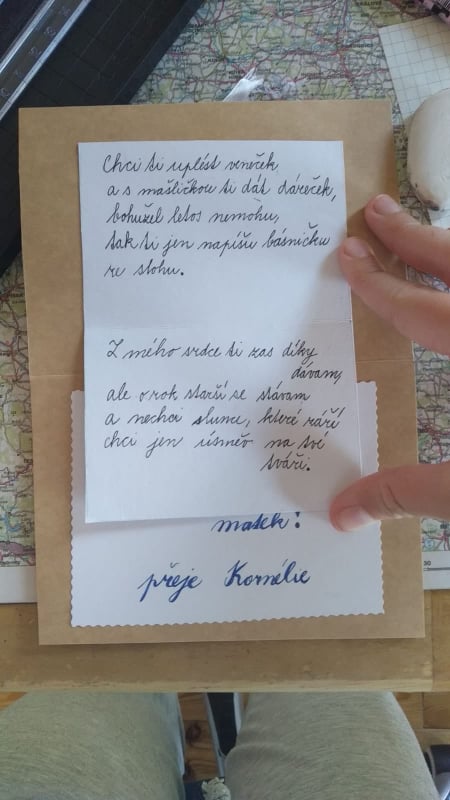 Chci ti uplést veneček
a s mašličkou ti dát dáreček,
bohužel letos nemohu,
tak ti jen napíšu básničku
ze slohu.
Z mého srdce ti zas díky
dávam,
ale o rok starší se stávam
a nechci slunce, které září
chci jen úsměv na tvé
tváři.
matek!
přeje Kornélie